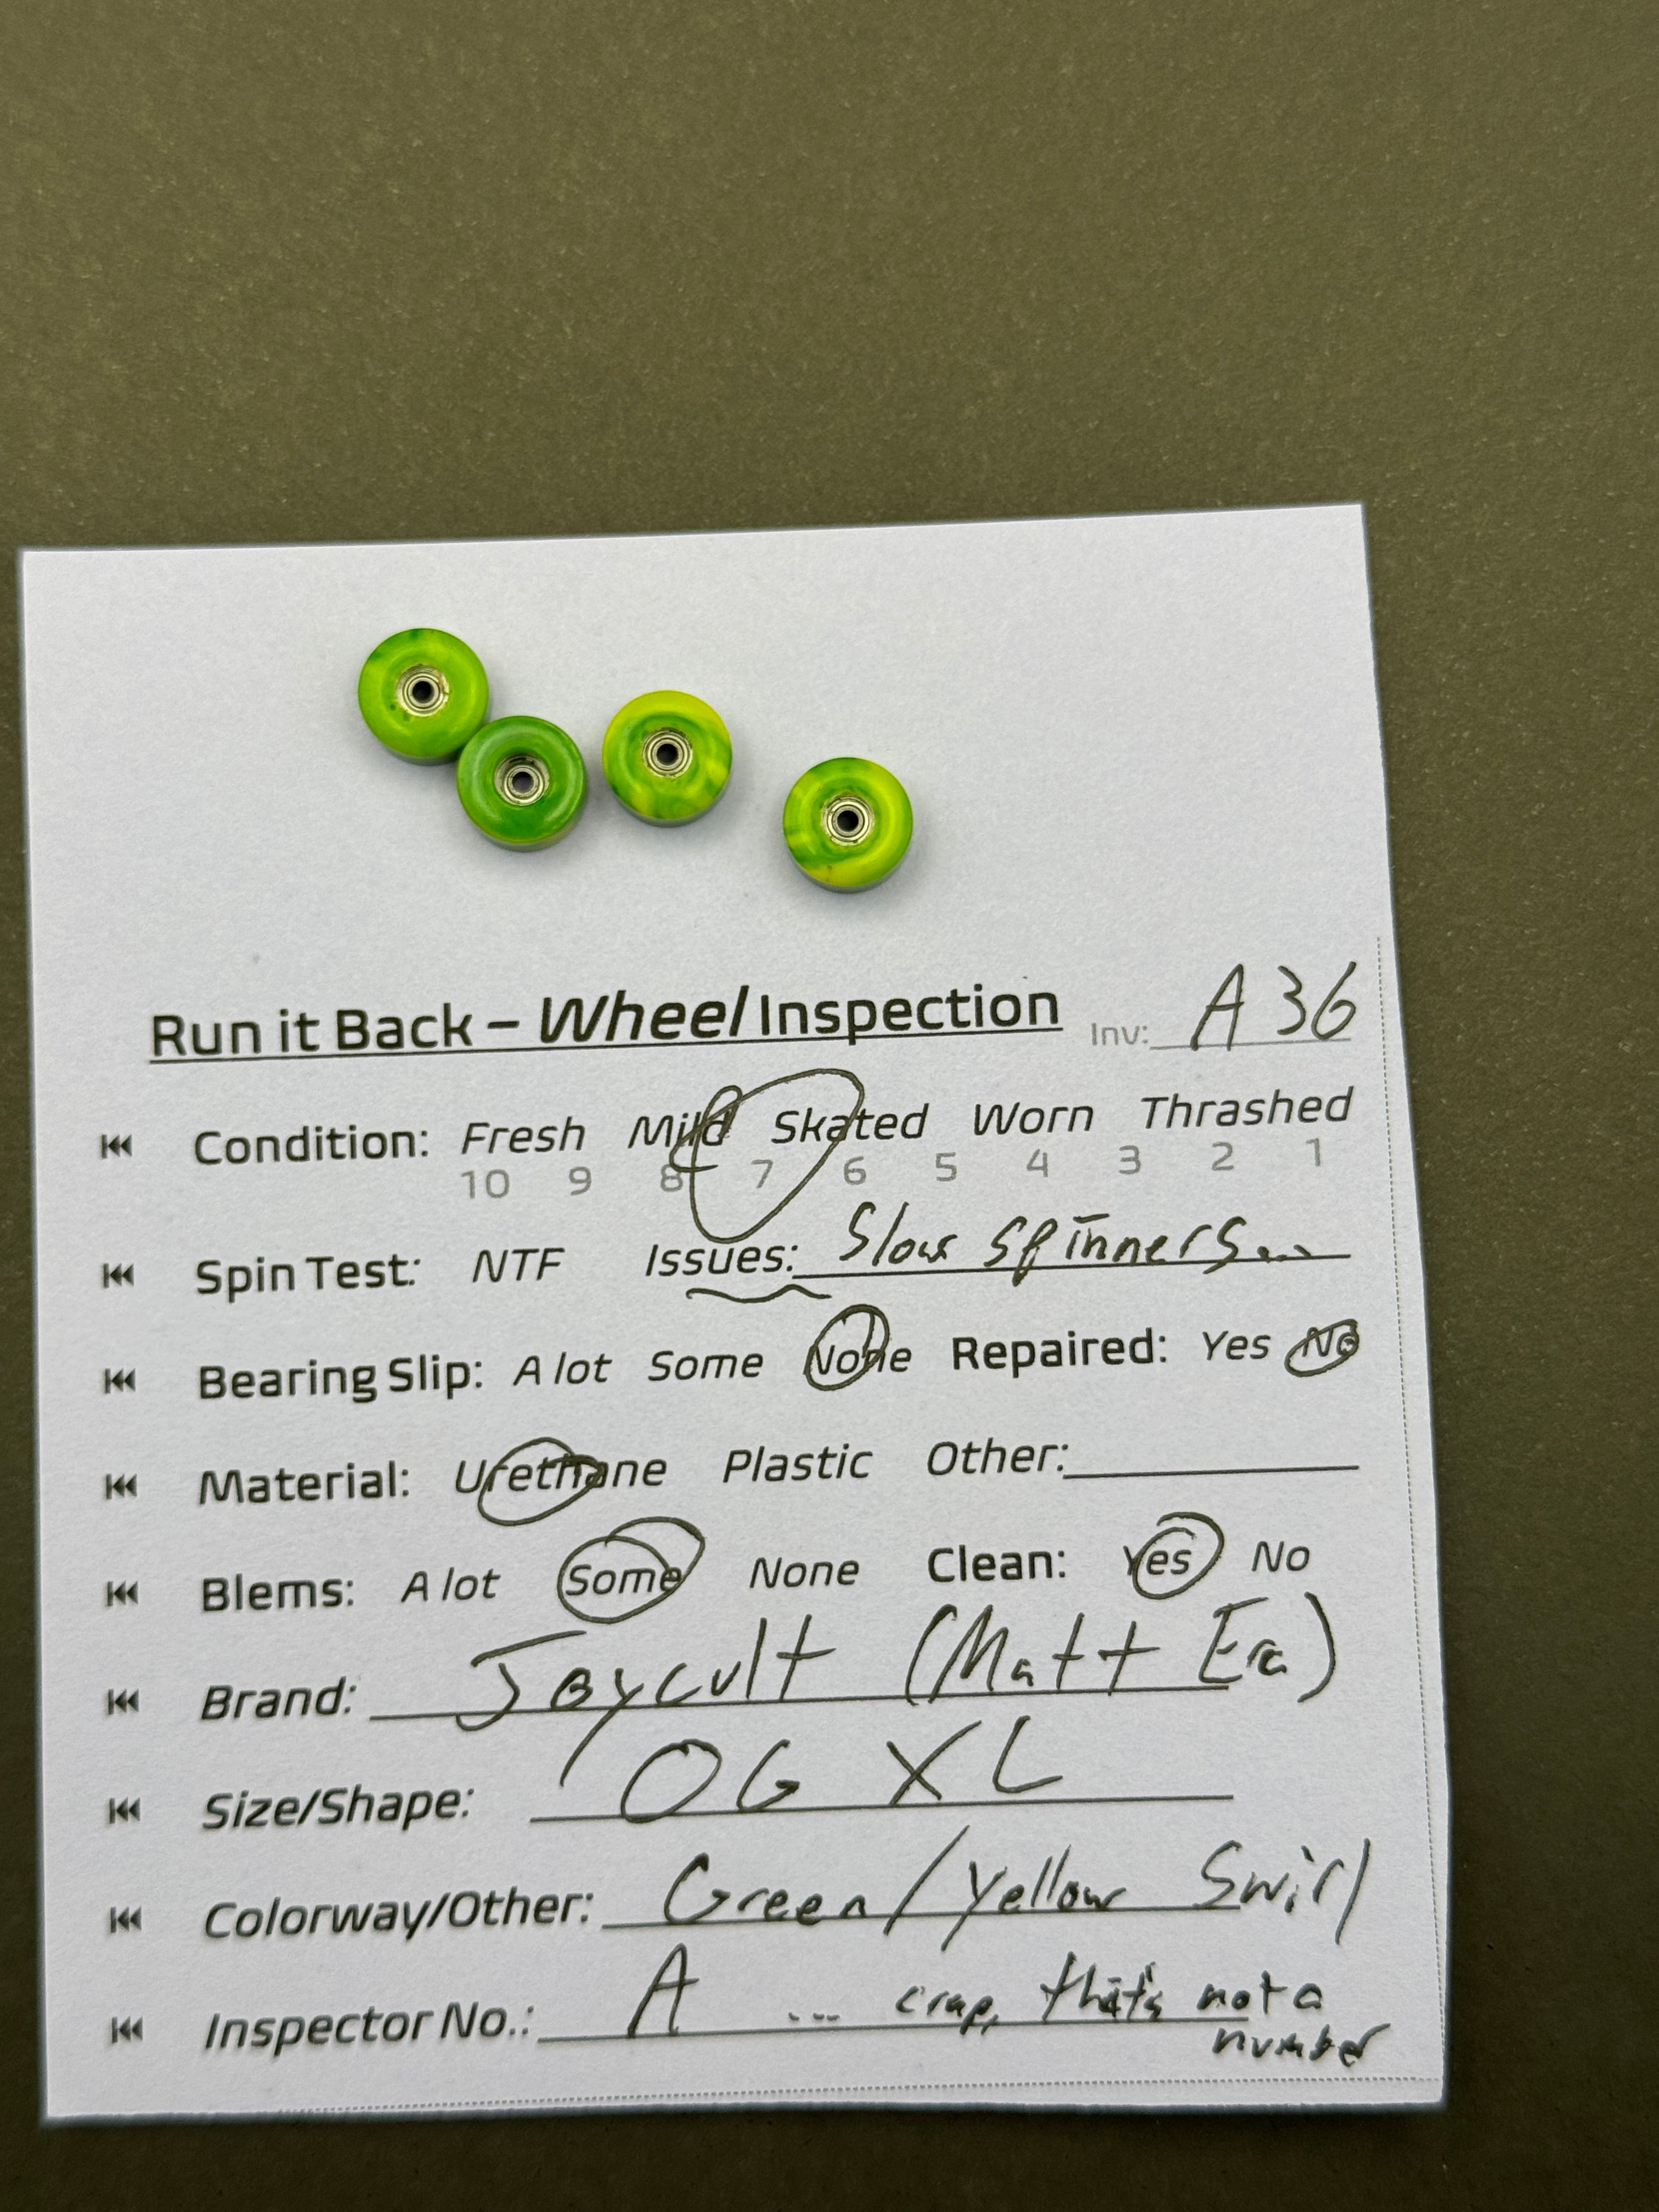 Run it Back – Wheel Inspection Inv: A36
Condition: Fresh Mild Skated Worn Thrashed
10 9 8 7 6 5 4 3 2 1
Spin Test: NTF Issues: Slow spinners...
Bearing Slip: A lot Some None Repaired: Yes No
Material: Urethane Plastic Other:
Blems: A lot Some None Clean: Yes No
Brand: Joycult (Matt Era)
Size/Shape: OG XL
Colorway/Other: Green/Yellow Swirl
Inspector No.: A ... crap, that's not a
number